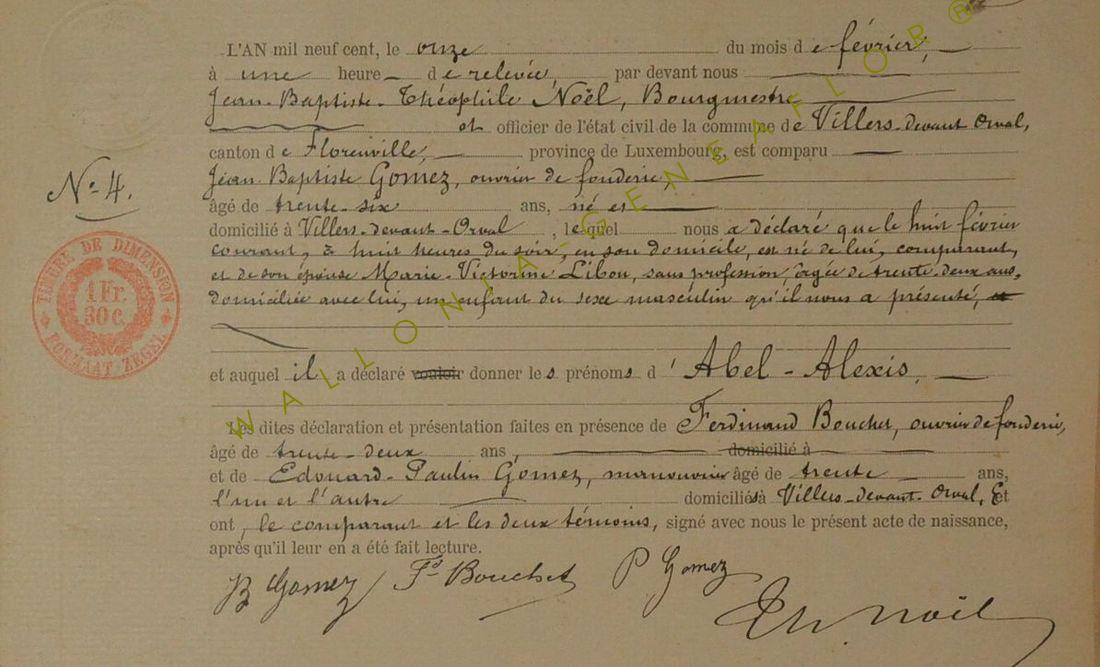 L'AN mil neuf cent, le onze du mois de février,
à une heure de relevée, par devant nous
Jean-Baptiste-Théophile Noël, Bourgmestre
et officier de l'état civil de la commune de Villers-devant Orval,
canton de Florenville, province de Luxembourg, est comparu
Jean-Baptiste Gomez, ouvrier de fonderie,
âgé de trente-six ans, né et
domicilié à Villers-devant-Orval, lequel nous a déclaré que le huit février
courant, à huit heures du soir, en son domicile, est né de lui, comparant,
et de son épouse Marie-Victorine Libon, sans profession, âgée de trente-deux ans,
domiciliée avec lui, un enfant du sexe masculin qu'il nous a présenté, et
et auquel il a déclaré vouloir donner les prénoms d'Abel-Alexis,
Les dites déclaration et présentation faites en présence de Ferdinand Bouchet, ouvrier de fonderie,
âgé de trente-deux ans, domicilié à
et de Edouard-Paulin Gomez, manouvrier âgé de trente ans,
l'un et l'autre domiciliés à Villers-devant-Orval, Et
ont, le comparant et les deux témoins, signé avec nous le présent acte de naissance,
après qu'il leur en a été fait lecture.
B Gomez Fd Bouchet P Gomez
Th. Noël
No 4.
TIMBRE DE DIMENSION
1 Fr.
30 c.
FORMAAT ZEGEL
WALLONIA-GENEAFLOR®